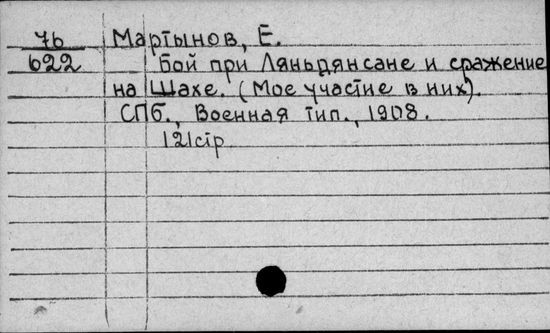 76 Мартынов, Е.
622 Бой при Ляньдянсане и сражение
на Шахе. (Мое участие в них).
СПб., Военная тип., 1908.
121стр